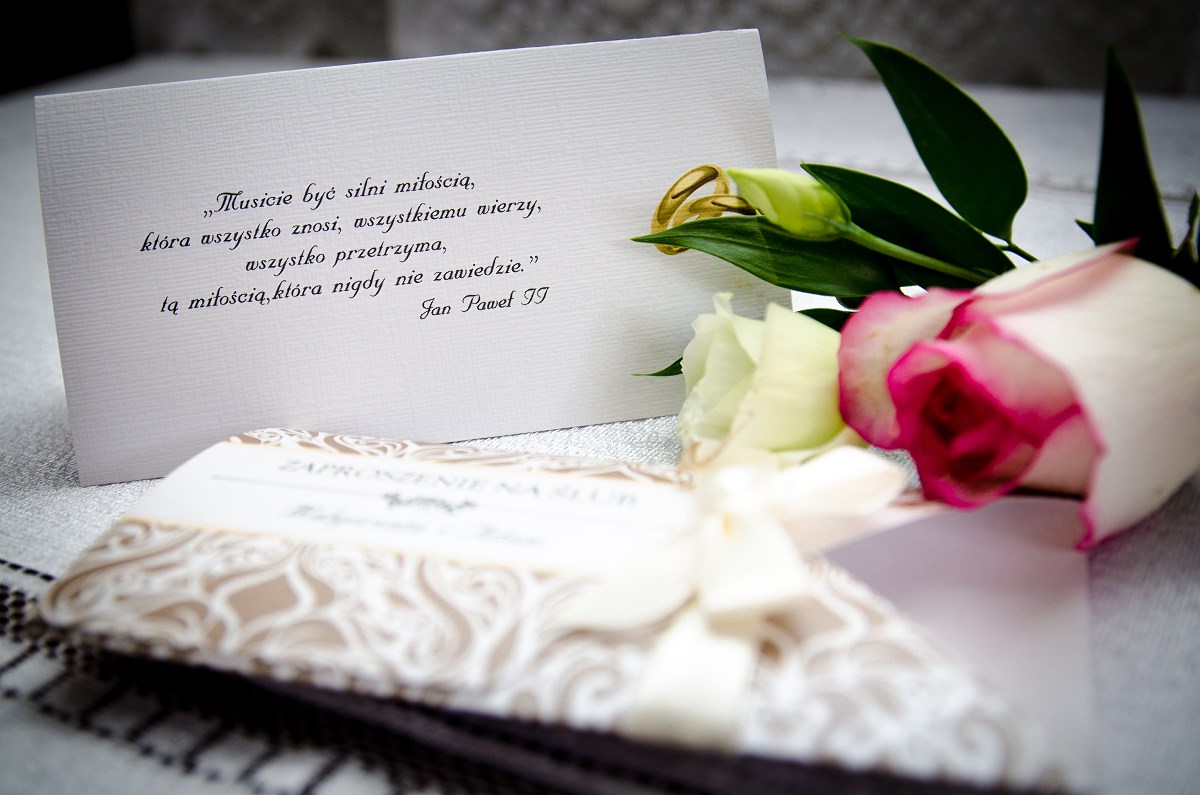 „Musicie być silni miłością,
która wszystko znosi, wszystkiemu wierzy,
wszystko przetrzyma,
tą miłością,która nigdy nie zawiedzie.”
Jan Paweł II
ZAPROSZENIE NA ŚLUB